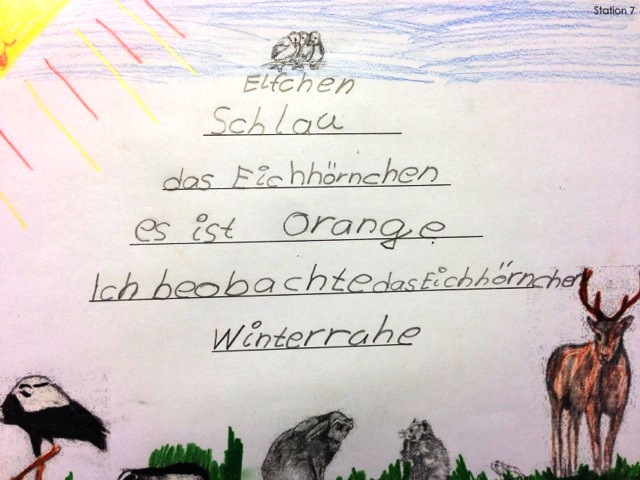 Station 7
Elfchen
Schlau
das Eichhörnchen
es ist Orange
Ich beobachte das Eichhörnchen
Winterrahe